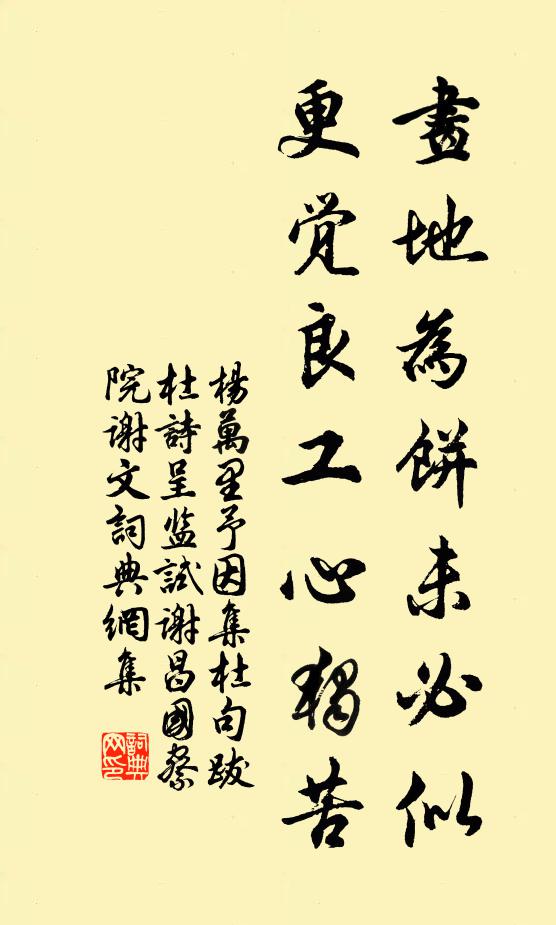 畫地為餅未必似
更觉良工心獨苦
楊萬里予因集杜句跋
杜詩呈监試谢昌國察
院谢文詞典網集
詞典
网印